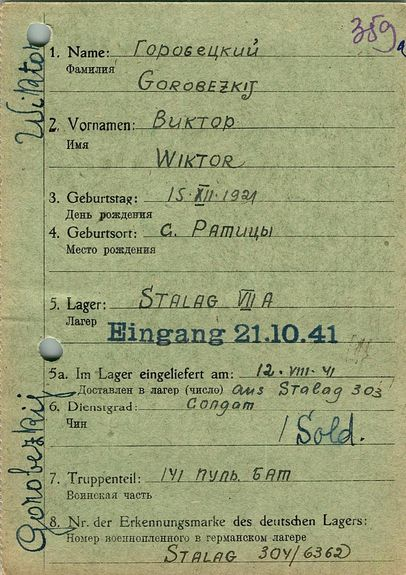 359
1. Name: Горобецкий
Фамилия
GOROBEZKIJ
2. Vornamen: Виктор
Имя
WIKTOR
3. Geburtstag: 15.XII.1921
День рождения
4. Geburtsort: с. Ратицы
Место рождения
5. Lager: STALAG VII A
Лагер
Eingang 21.10.41
5a. Im Lager eingeliefert am: 12.VIII.41
Доставлен в лагер (число) aus Stalag 303
6. Dienstgrad: Солдат
Чин
/ Sold.
7. Truppenteil: 141 пуль. БАТ
Воинская часть
8. Nr. der Erkennungsmarke des deutschen Lagers:
Номер военнопленного в германском лагере
STALAG 304/6362
Wiktor
Gorobezkij